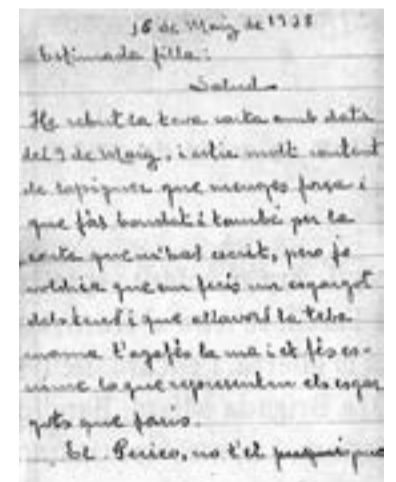 16 de Maig de 1938
Estimada filla:
Salud
He rebut la teva carta amb data
del 9 de Maig, i estic molt content
de sapiguer que menges força i
que fas bondat i també per la
carta que m'has escrit, pero jo
voldria que em fesis un esgargot
dels teus i que allavors la teba
mama t'agafés la ma i et fés es-
riure lo que representen els esgar
gots que faris.
El Perico, no t'el puguis que